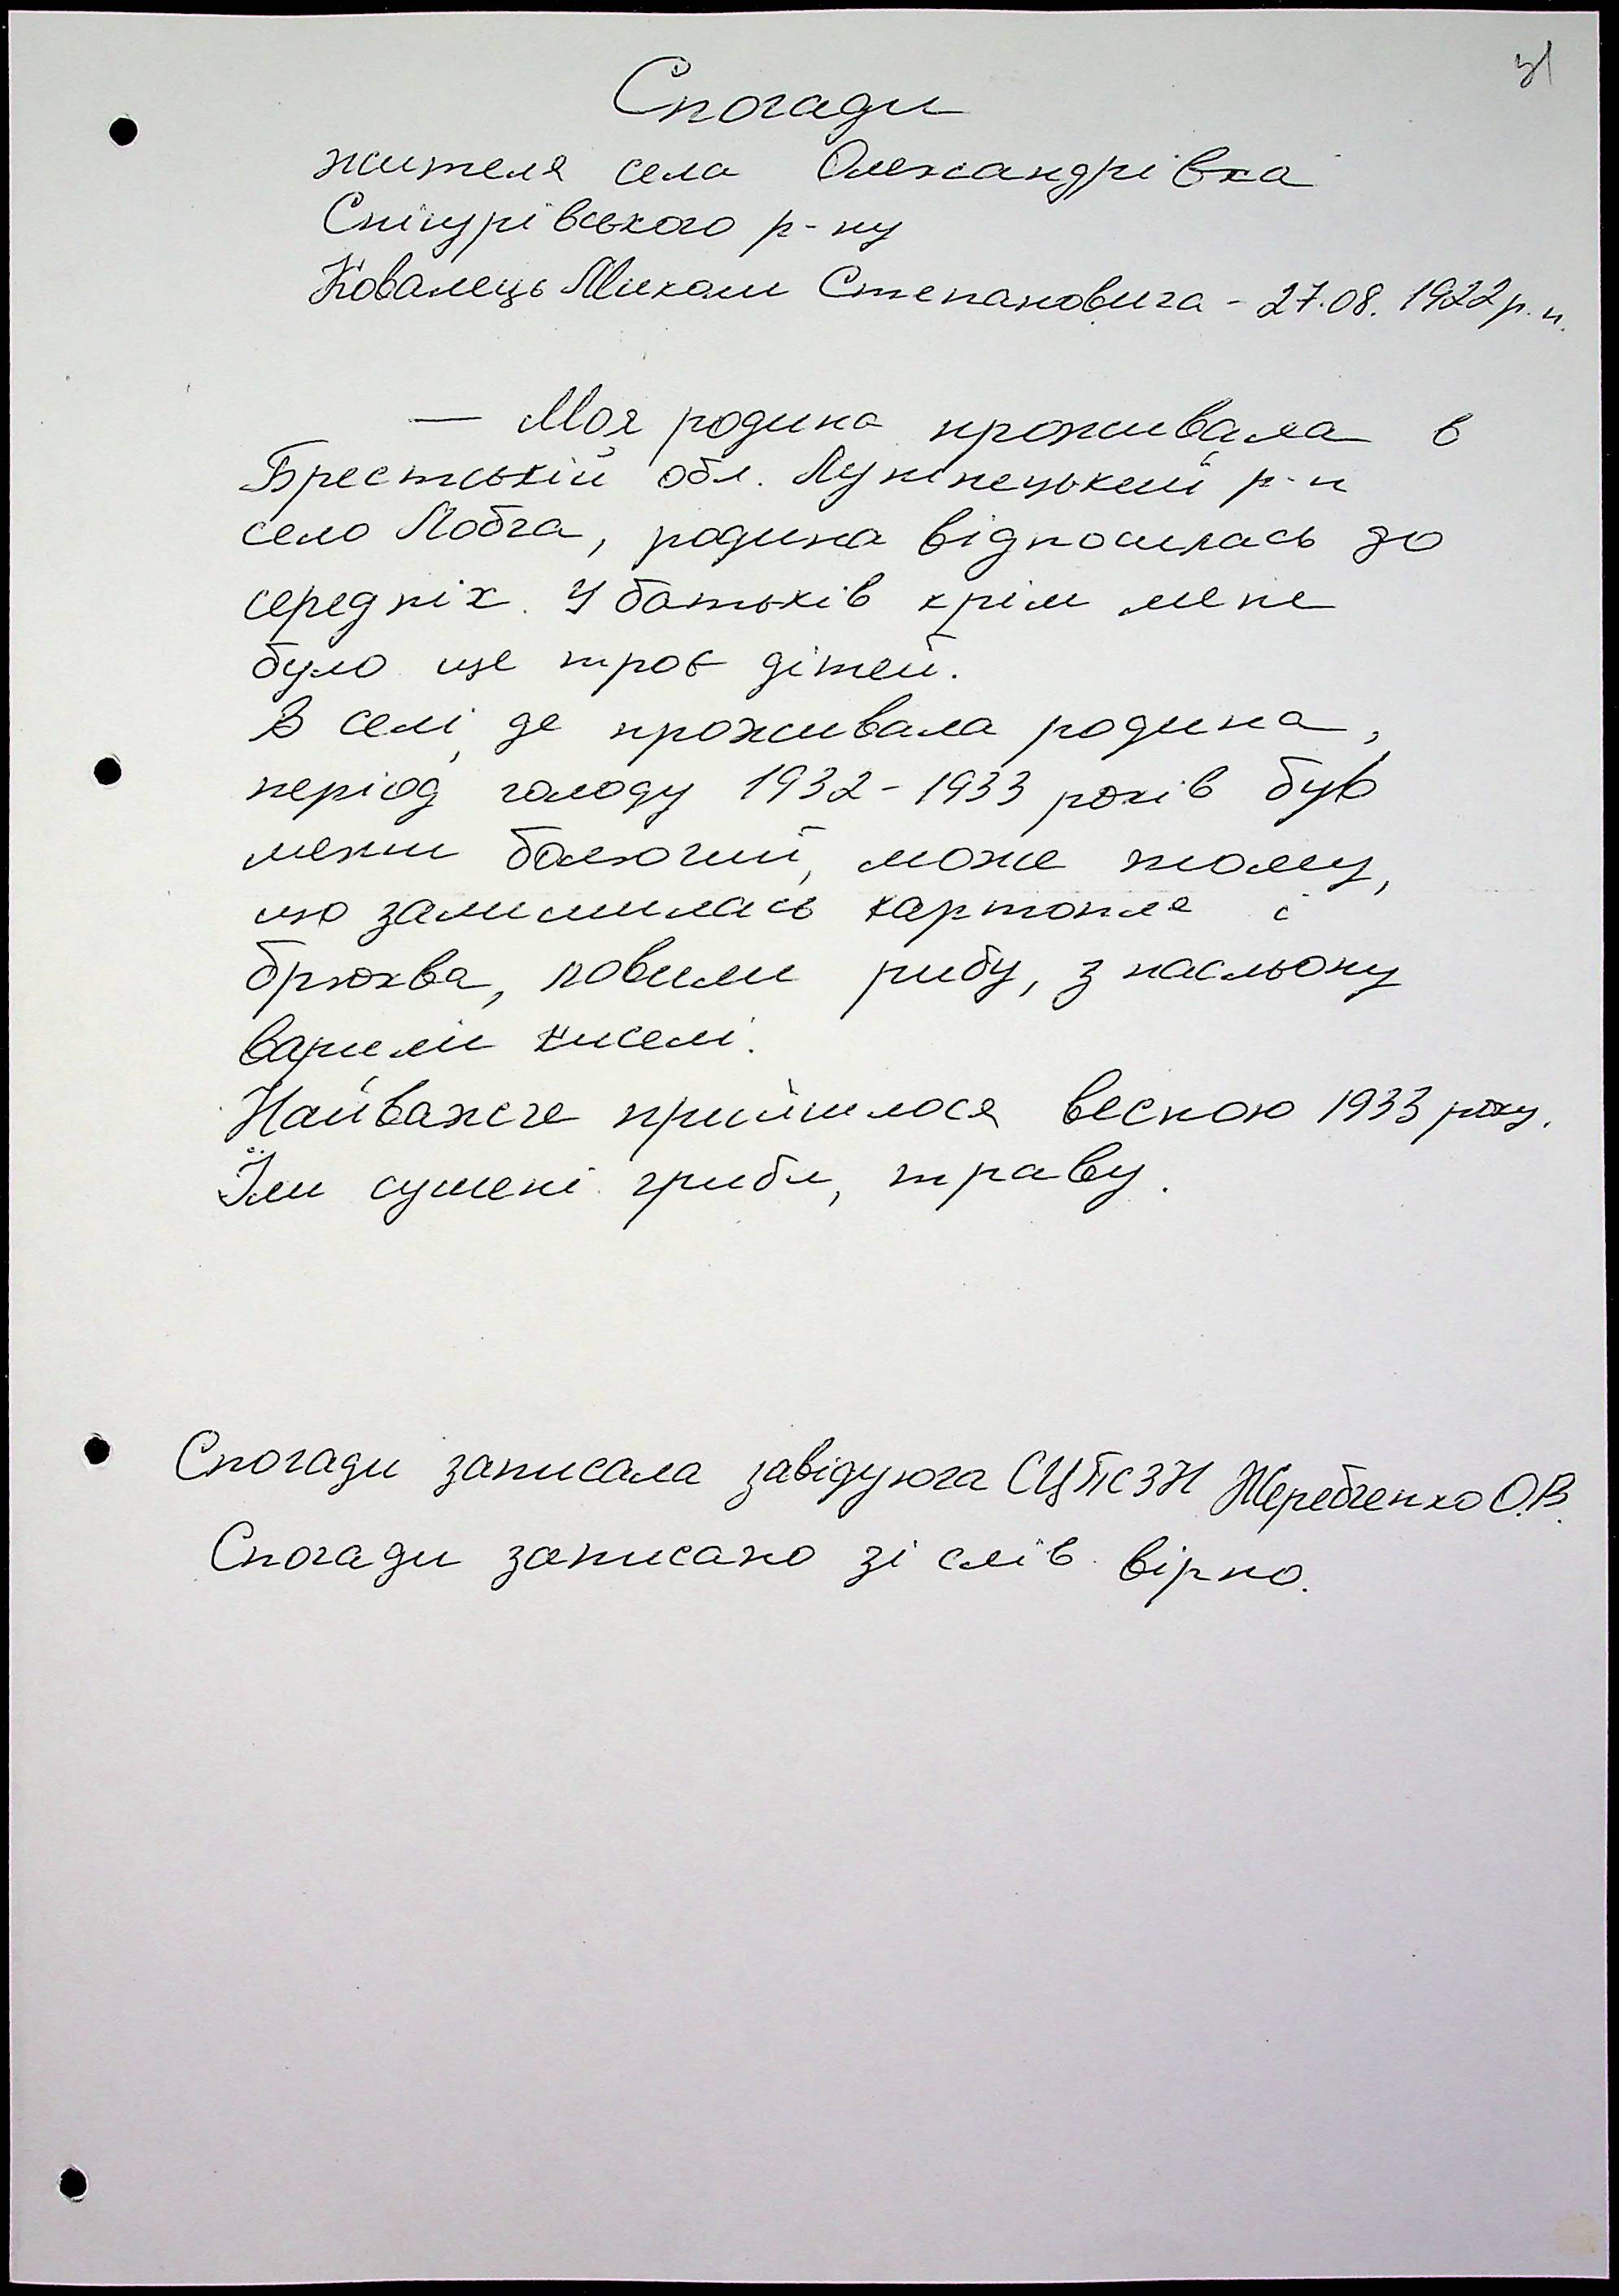 31
Спогади
жителя села Олександрівка
Снігурівського р-ну
Ковалець Миколи Степановича - 27.08.1922 р.н.
— Моя родина проживала в
Брестській обл. Лунінецький р-н
село Лобча, родина відносилась до
середніх. У батьків крім мене
було ще троє дітей.
В селі, де проживала родина,
період голоду 1932-1933 років був
менш болючий, може тому,
що залишилась картопля і
брюква, ловили рибу, з насльону
варили киселі.
Найважче прийшлося весною 1933 року.
Їли сушені гриби, траву.
Спогади записала завідуюча СЦПСЗН Жеребченко О.В.
Спогади записано зі слів вірно.